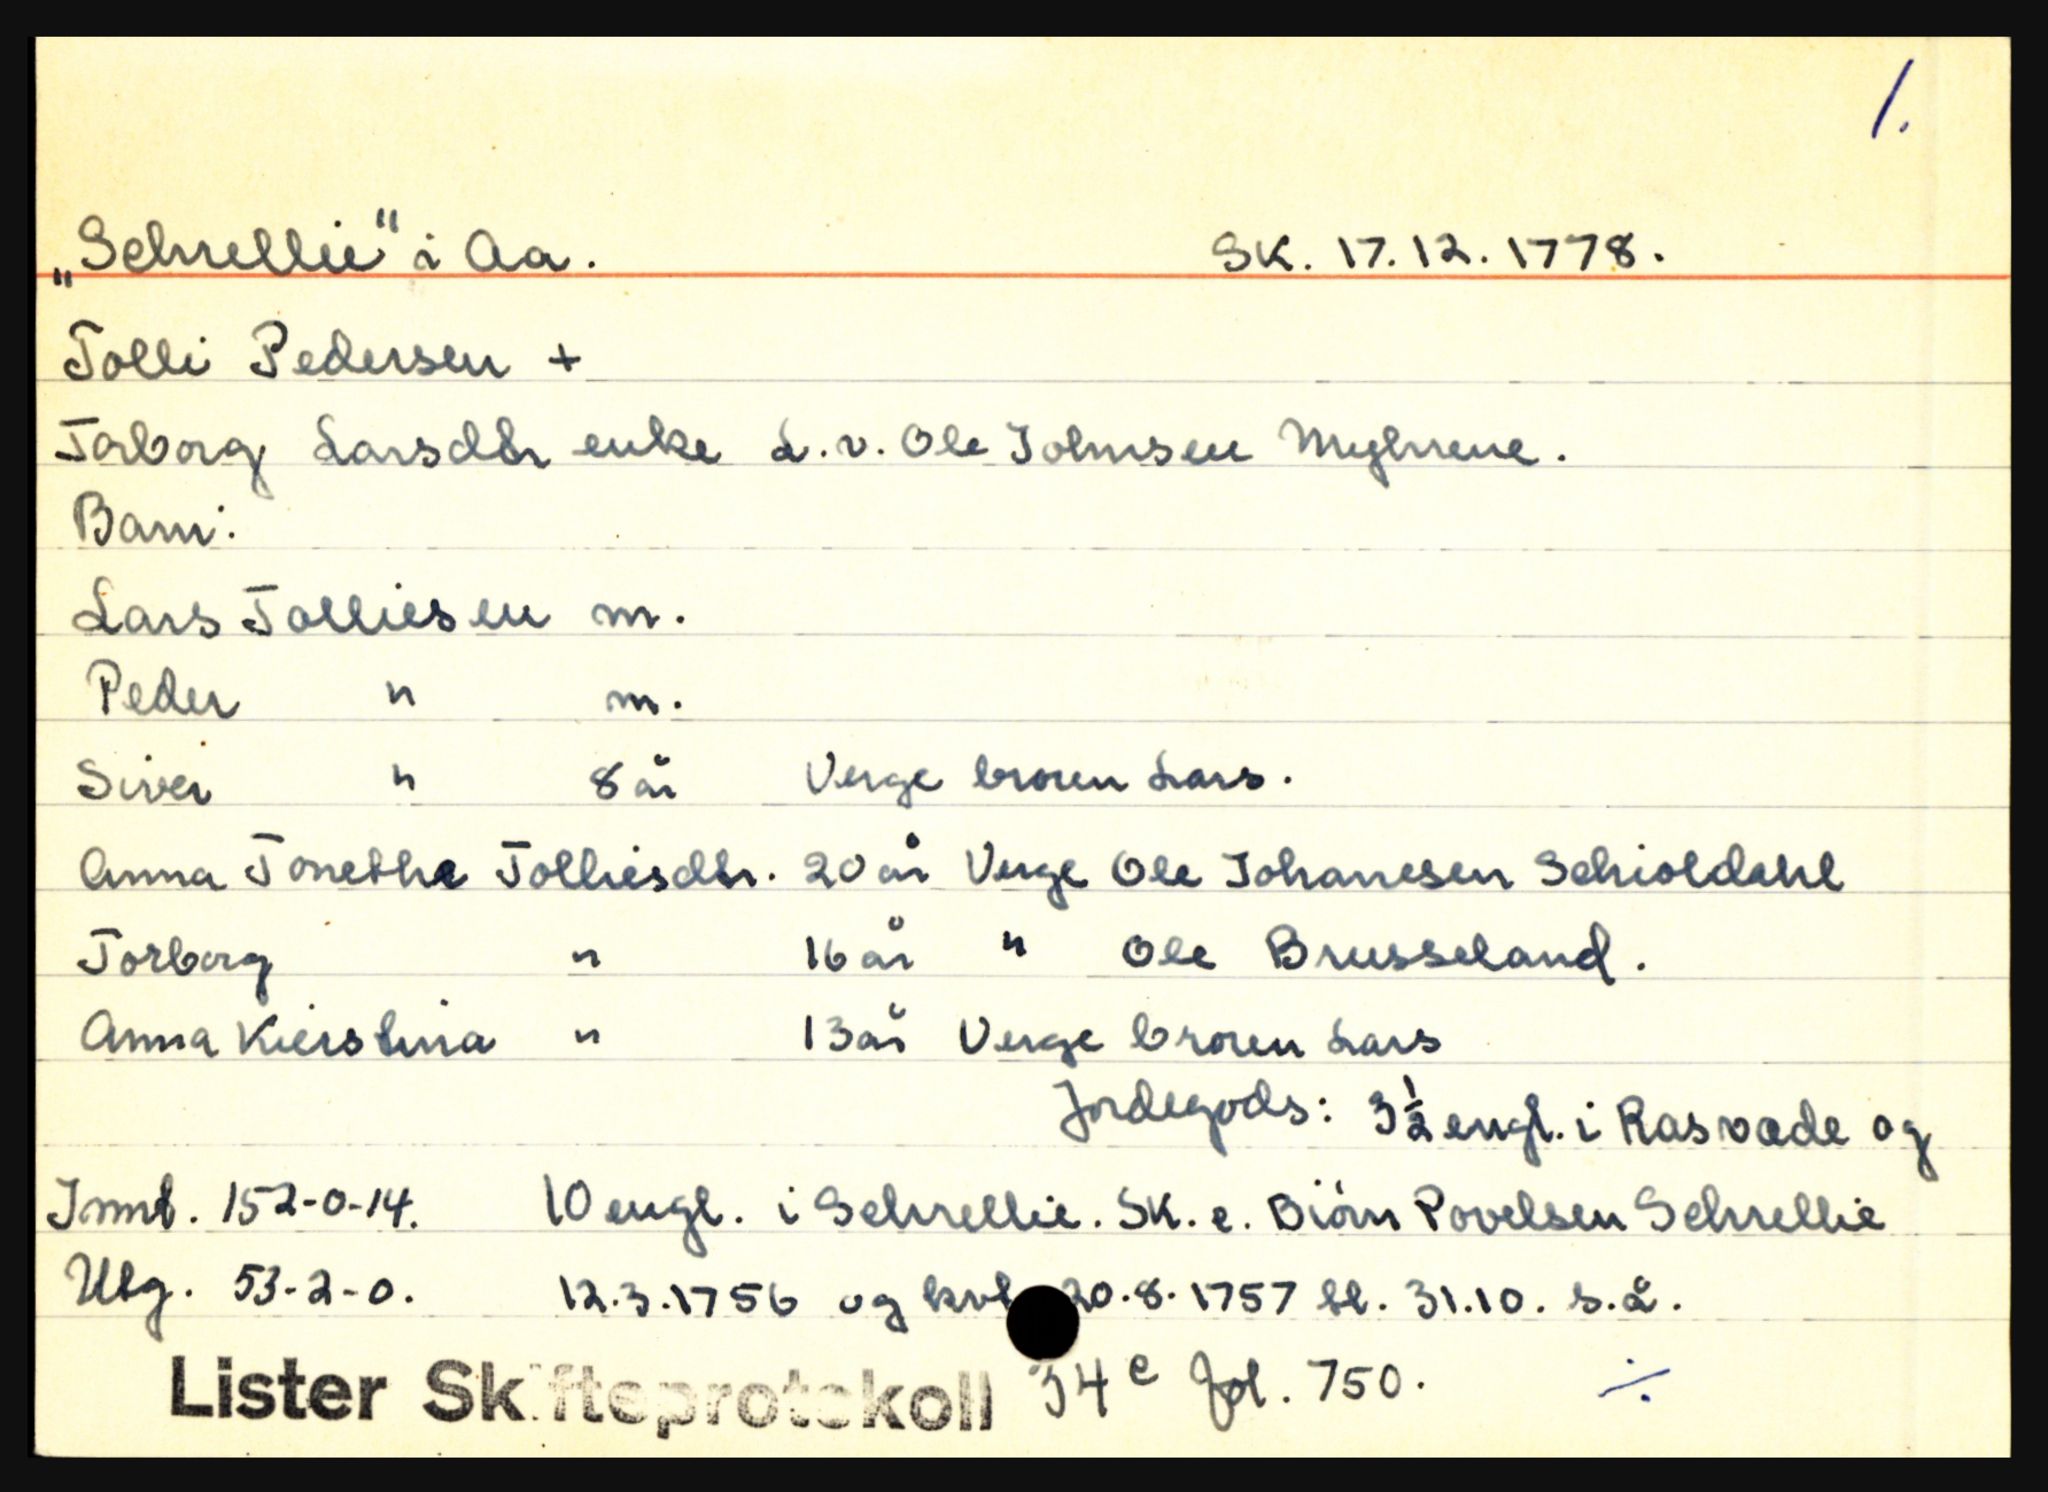 1.
„Schrellie" i Aa. SK. 17.12.1778.
Tolli Pedersen +
Torborg Larsdtr enke L.v. Ole Johnsen Myhrene.
Barn:
Lars Tolliesen m.
Peder " m.
Siver " 8 år Verge broren Lars.
Anna Tonethe Tolliesdtr. 20 år Verge Ole Johanesen Schioldahl
Torborg " 16 år " Ole Brusseland.
Anna Kierstina " 13 år Verge broren Lars
Jordegods: 3½ engl. i Rasvode og
Innt. 152-0-14. 10 engl. i Schrellie. SK. e. Biörn Povelsen Schrellie
Utg. 53-2-0. 12.3.1756 og kvt 20.8.1757 tl. 31.10. s.å.
Lister Skifteprotokoll 34 c fol. 750. ⁒